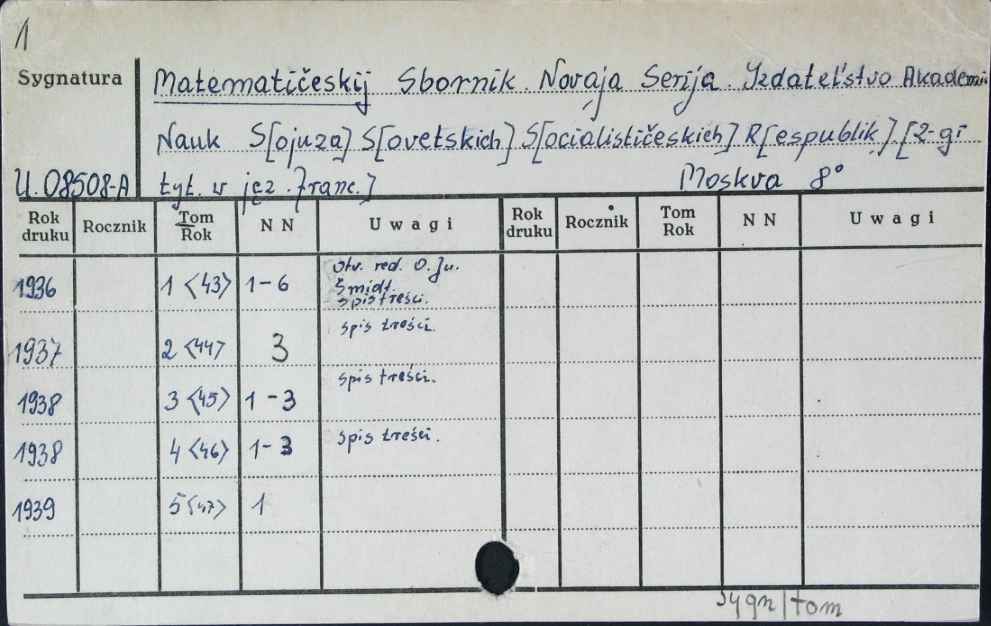 1
Sygnatura
Matematičeskij Sbornik. Novaja Serija. Izdatel'stvo Akademii
Nauk S[ojuza] S[ovetskich] S[ocialističeskich] R[espublik]. [2-gi
U.08508-A tyt. w jęz. franc.] Moskva 8°
Rok druku Rocznik Tom Rok N N Uwagi Rok druku Rocznik Tom Rok N N Uwagi
1936 1 <43> 1-6 Otv. red. O. Ju. Šmidt. spis treści.
1937 2 <44> 3 spis treści.
1938 3 <45> 1-3 spis treści.
1938 4 <46> 1-3 spis treści.
1939 5 <47> 1
sygn/tom